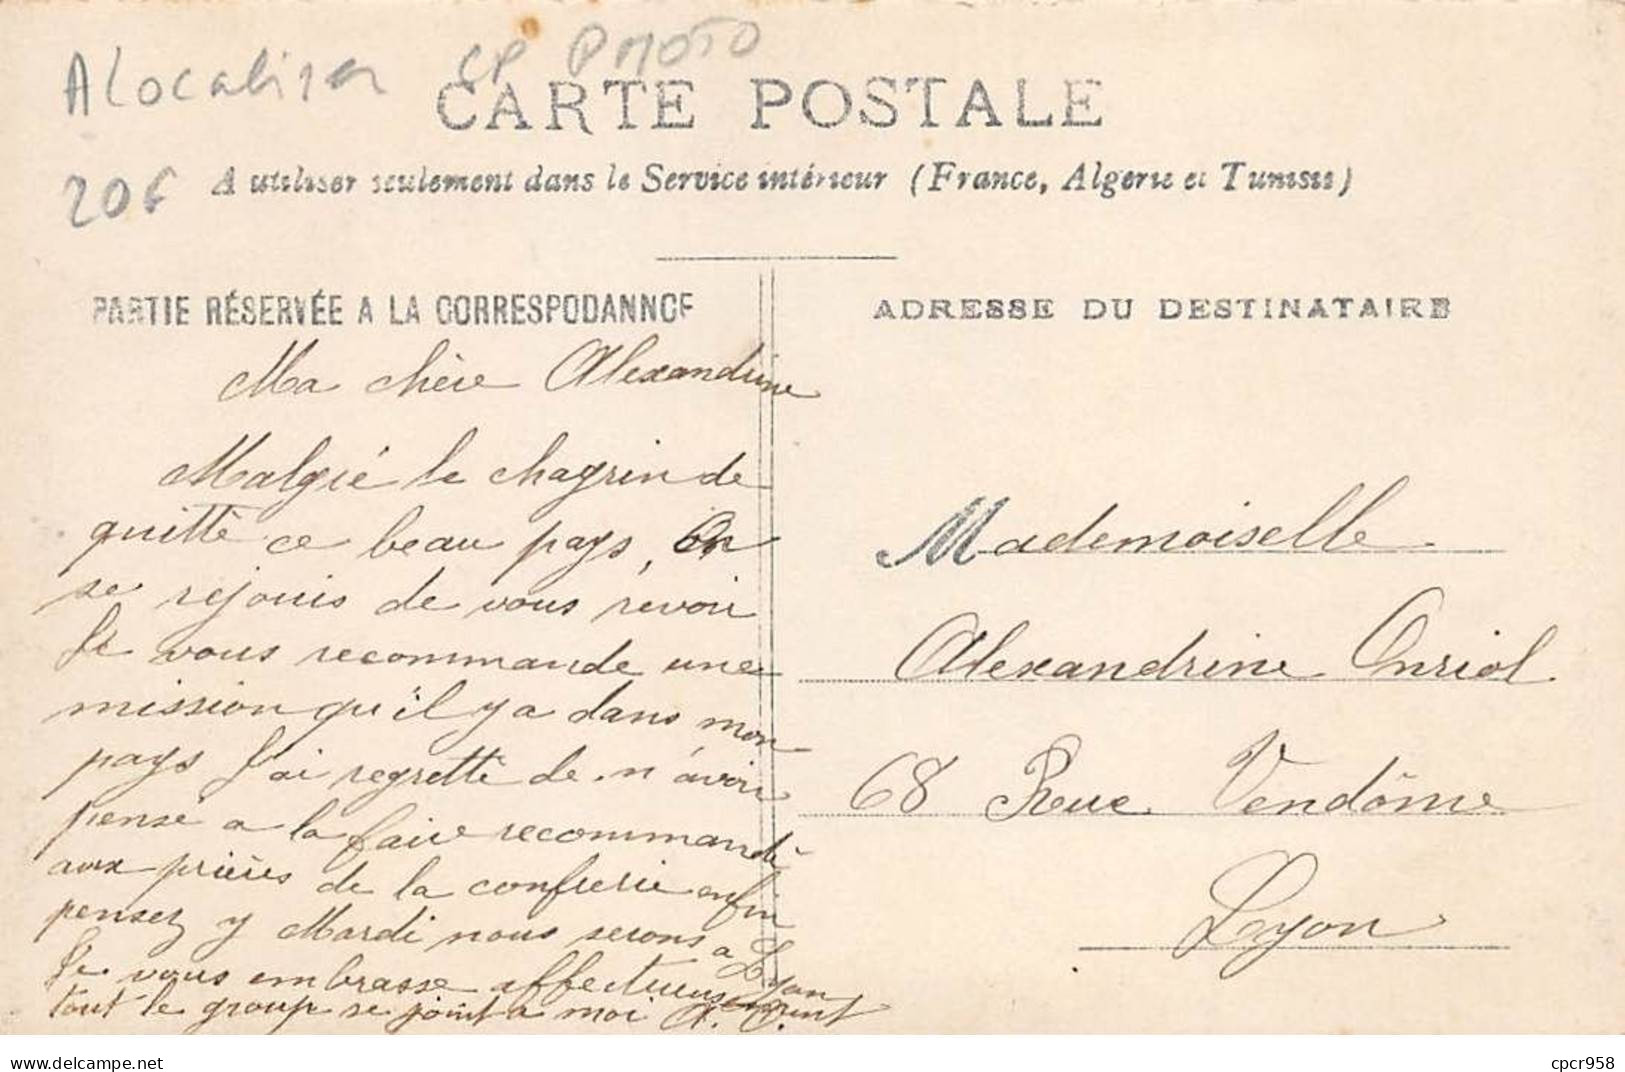 A Localiser CP PHOTO
20€
CARTE POSTALE
A utiliser seulement dans le Service intérieur (France, Algerie et Tunisie)
PARTIE RÉSERVÉE A LA CORRESPODANNCE
Ma chère Alexandrine
Malgré le chagrin de
quitté ce beau pays, On
se rejouis de vous revoir
Je vous recommande une
mission qu'il y a dans mon
pays J'ai regretté de n'avoir
pensé a la faire recommandé
aux prières de la confrerie enfin
pensez y Mardi nous serons a Lyon
Je vous embrasse affectueusement
tout le group se joint a moi A. O.
ADRESSE DU DESTINATAIRE
Mademoiselle
Alexandrine Onriol
68 Rue Vendôme
Lyon
Delcampe.net
cpcr958